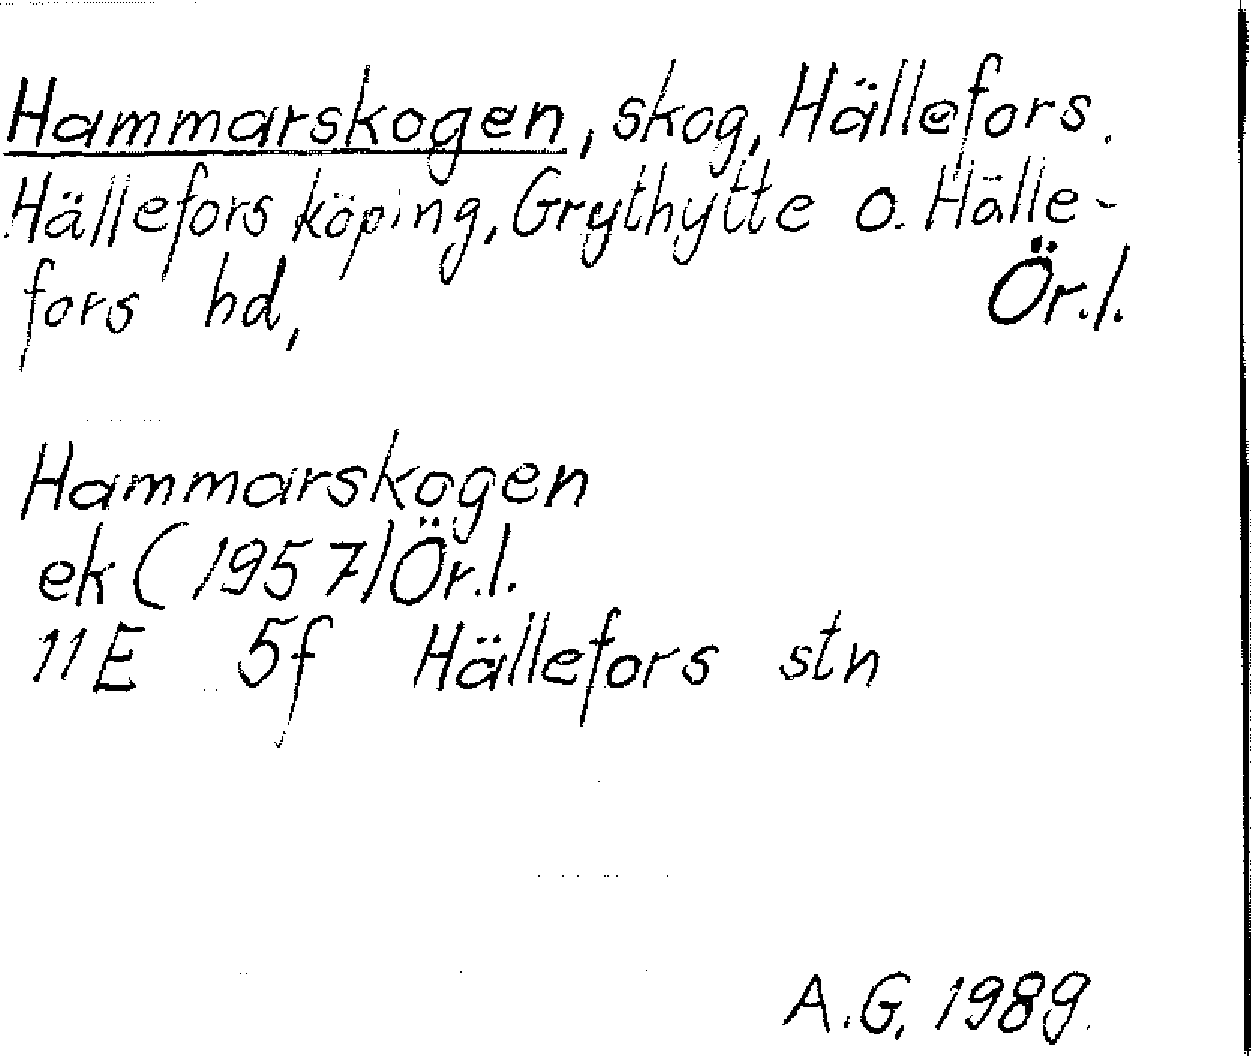 Hammarskogen, skog, Hällefors.
Hällefors köping, Grythytte o. Hälle-
fors hd, Ör.l.
Hammarskogen
ek (1957) Ör.l.
11E 5f Hällefors stn
A.G. 1989.